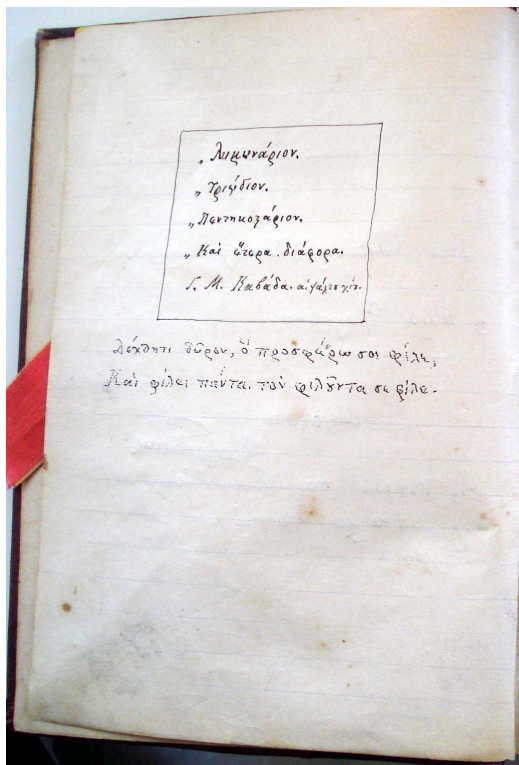 „ Λυκωνάριον.
„ Τριῴδιον.
„ Πεντηκοστάριον.
„ Καὶ ἕτερα . διάφορα.
Γ. Μ. Καβάδα.
Δέχθητι δῶρον, ὃ προσφέρω σοι φίλε,
Καὶ φίλει πάντα. τὸν φιλοῦντα σε φίλε.